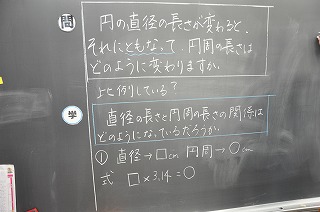 問
円の直径の長さが変わると、
それにともなって、円周の長さは
どのように変わりますか。
比例している?
学
直径の長さと円周の長さの関係は
どのようになっているだろうか。
① 直径→□cm 円周→○cm
式 □×3.14=○